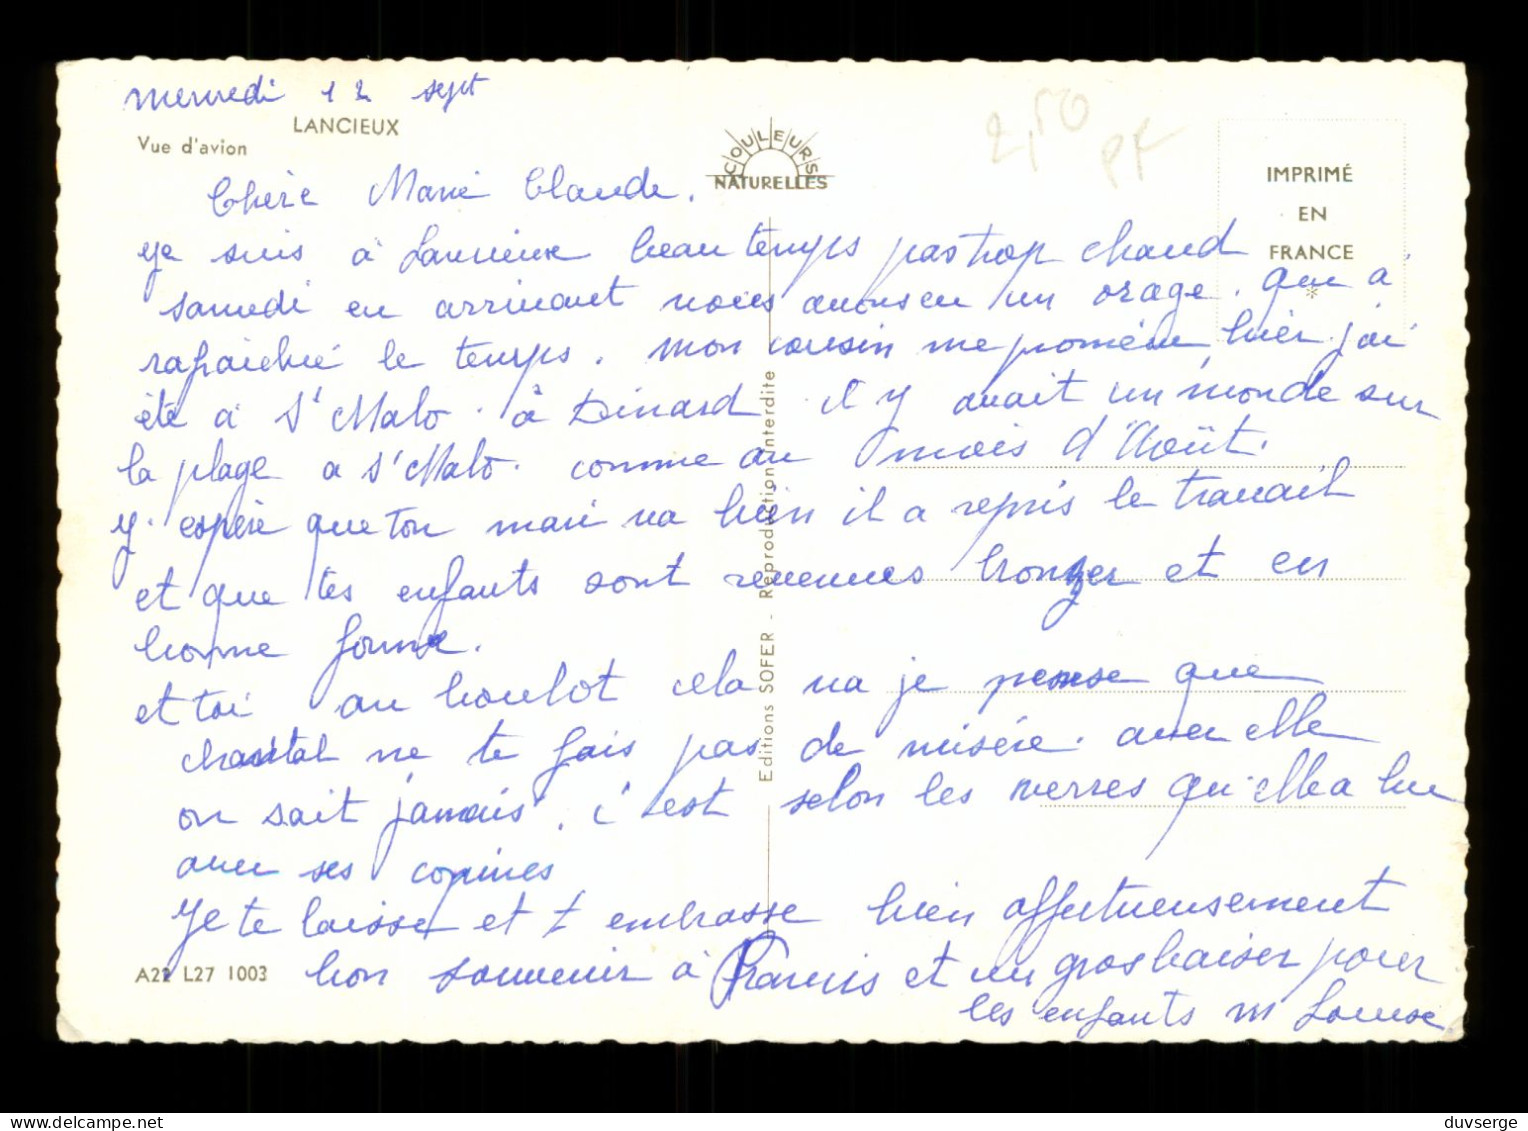 mercredi 12 sept
LANCIEUX
Vue d'avion
COULEURS
NATURELLES
2,50
PF
IMPRIMÉ
EN
FRANCE
*
Chère Marie Claude.
je suis à Lancieux beau temps pas trop chaud
samedi en arrivant nous avons eu un orage. qui a
rafraichie le temps. mon cousin me promène, hier j'ai
été à St Malo. à Dinard il y avait un monde sur
la plage a St Malo. comme au mois d'Août.
J'espère que ton mari va bien il a repris le travail
et que tes enfants sont revenues bronzer et en
bonne forme.
et toi au boulot cela va je pense que
chantal ne te fais pas de misère. avec elle
on sait jamais. c'est selon les verres qu'elle a bu
avec ses copines
Je te laisse et t embrasse bien affectueusement
bon souvenir à Francis et un gros baiser pour
les enfants m Louise
A22 L27 1003
Editions SOFER - Reproduction interdite
duvserge
delcampe.net